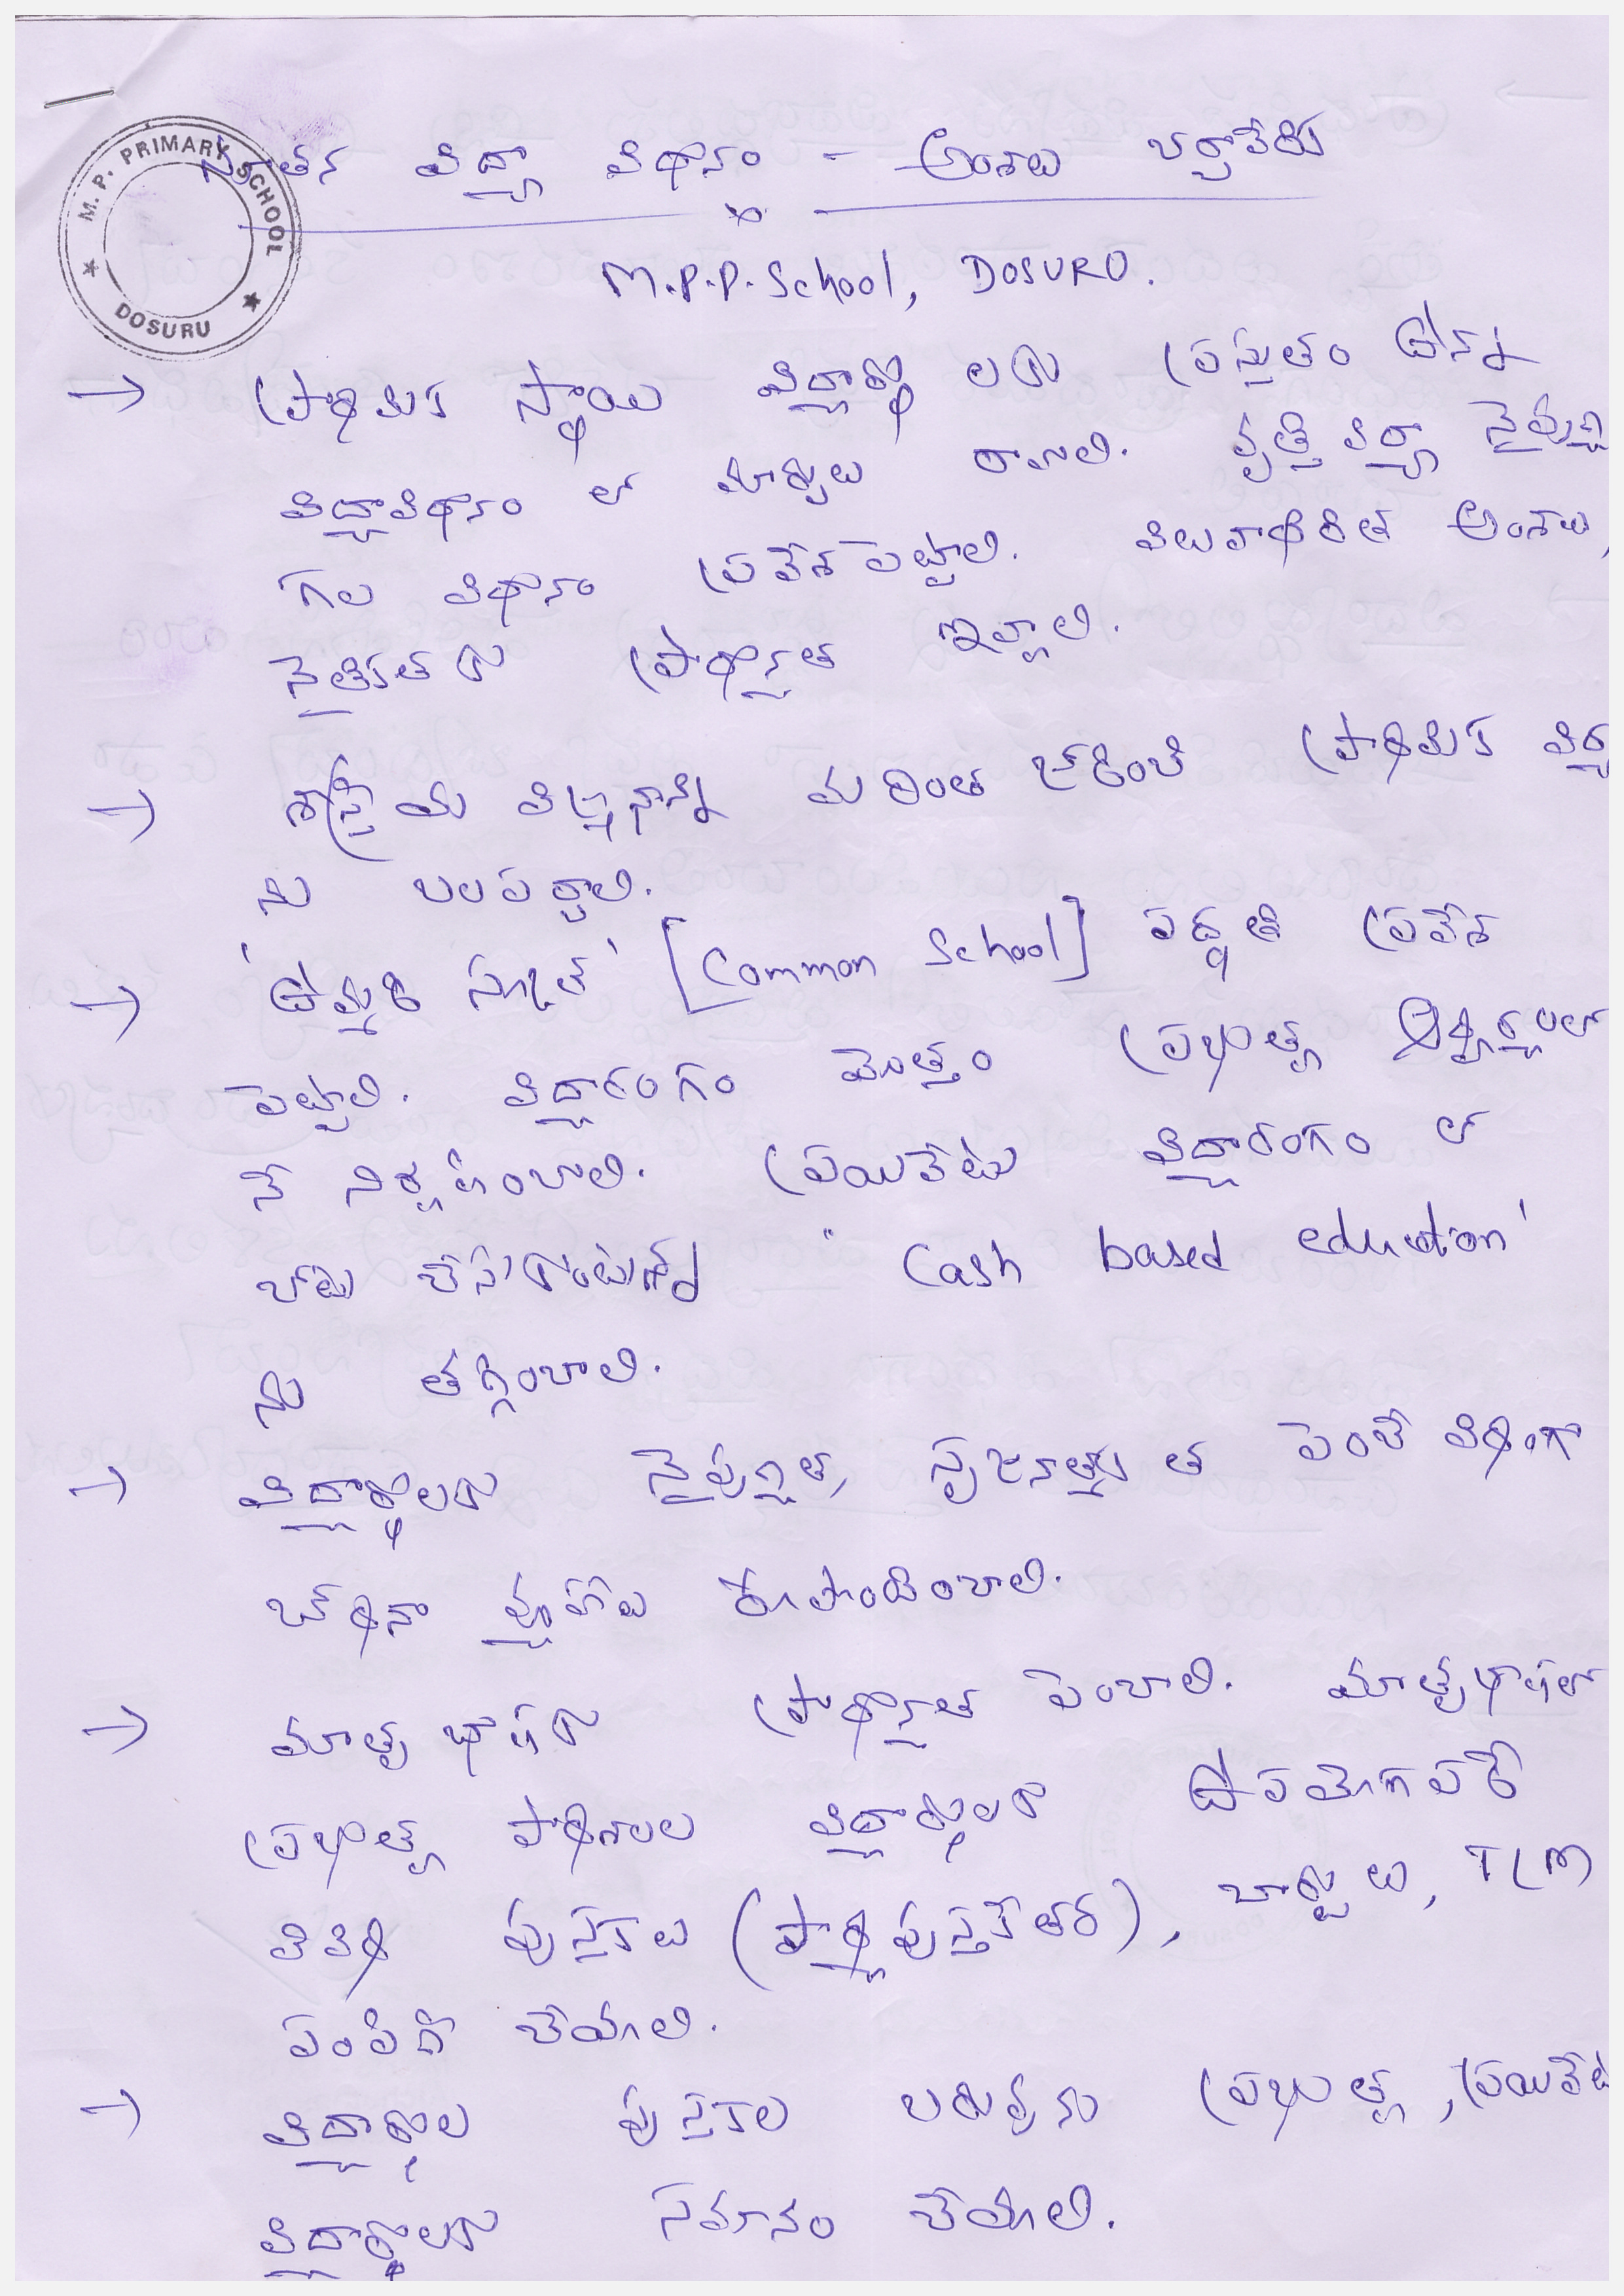 M. P. PRIMARY SCHOOL
DOSURU
నూతన విద్యా విధానం - అంశాలు
M.P.P. School, DOSURU.
→ ప్రాథమిక స్థాయి విద్యార్థులకు ప్రస్తుతం ఉన్న
విద్యావిధానం లో మార్పులు రావాలి. వృత్తి విద్యా నైపుణ్య
గల విధానం ప్రవేశపెట్టాలి. విలువాధారిత అంశాలు,
నైతికతకు ప్రాధాన్యత ఇవ్వాలి.
→ శాస్త్రీయ విజ్ఞానాన్ని మరింత జోడించి ప్రాథమిక విద్య
ను బలపర్చాలి.
→ 'ఉమ్మడి స్కూల్' [Common School] పద్ధతి ప్రవేశ
పెట్టాలి. విద్యారంగం మొత్తం ప్రభుత్వ ఆధ్వర్యంలో
నే నిర్వహించాలి. ప్రయివేటు విద్యారంగం లో
చోటు చేసుకొంటున్న 'Cash based education'
ను తగ్గించాలి.
→ విద్యార్థులకు నైపుణ్యత, సృజనాత్మకత పెంచే విధంగా
బోధనా వ్యూహాలు రూపొందించాలి.
→ మాతృభాషకు ప్రాధాన్యత పెంచాలి. మాతృభాషలో
ప్రభుత్వ పాఠశాలల విద్యార్థులకు ఉపయోగపడే
వివిధ పుస్తకాలు (పాఠ్యపుస్తకేతర), చార్టులు, TLM
పంపిణీ చేయాలి.
→ విద్యార్థుల పుస్తకాల బరువును ప్రభుత్వ, ప్రయివేటు
విద్యార్థులకు సమానం చేయాలి.